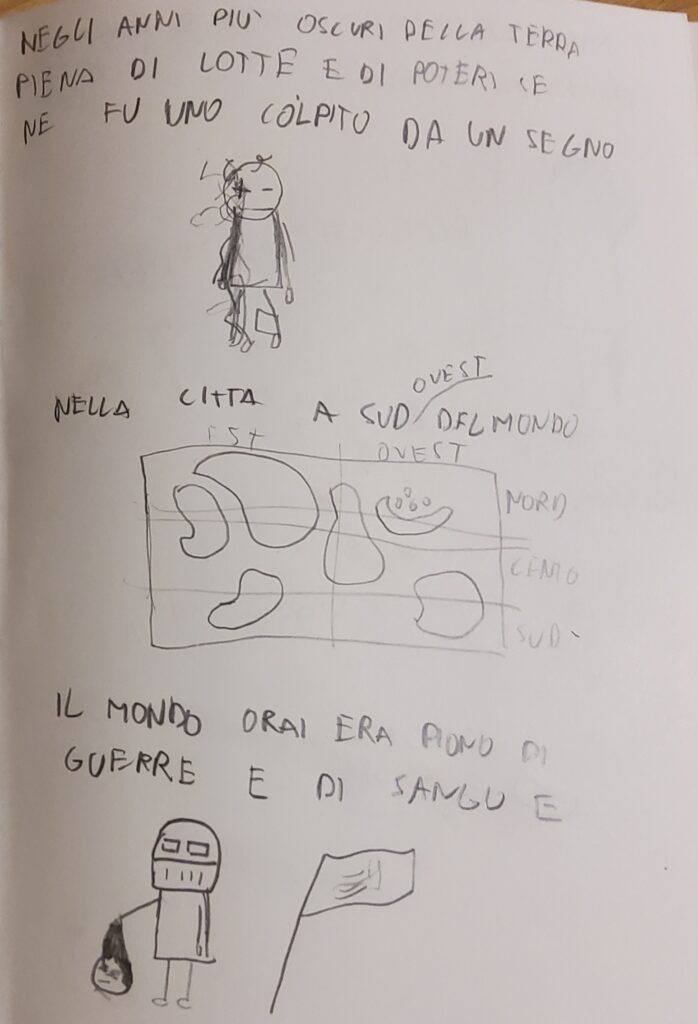 NEGLI ANNI PIU' OSCURI DELLA TERRA
PIENA DI LOTTE E DI POTERI CE
NE FU UNO COLPITO DA UN SEGNO
OVEST
NELLA CITTA A SUD/DEL MONDO
EST OVEST
NORD
CENTO
SUD
IL MONDO ORAI ERA PIONO DI
GUERRE E DI SANGUE